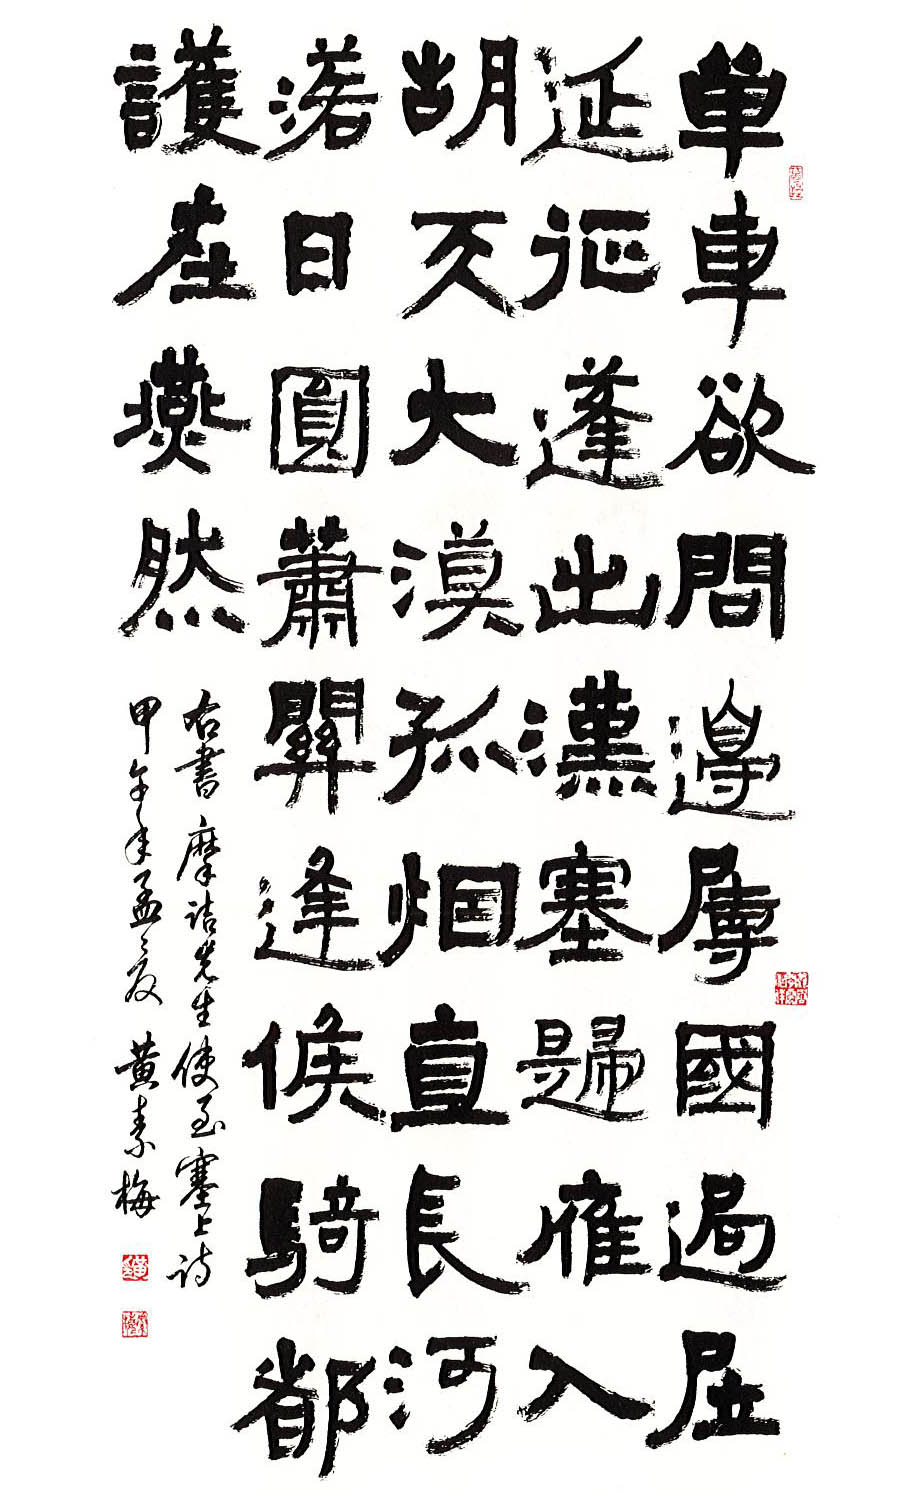 单車欲問邊屬國過居
延征蓬出漢塞歸雁入
胡天大漠孤烟直長河
落日圓蕭關逢候騎都
護在燕然
右書摩诘先生使至塞上诗
甲午年孟夏 黄素梅